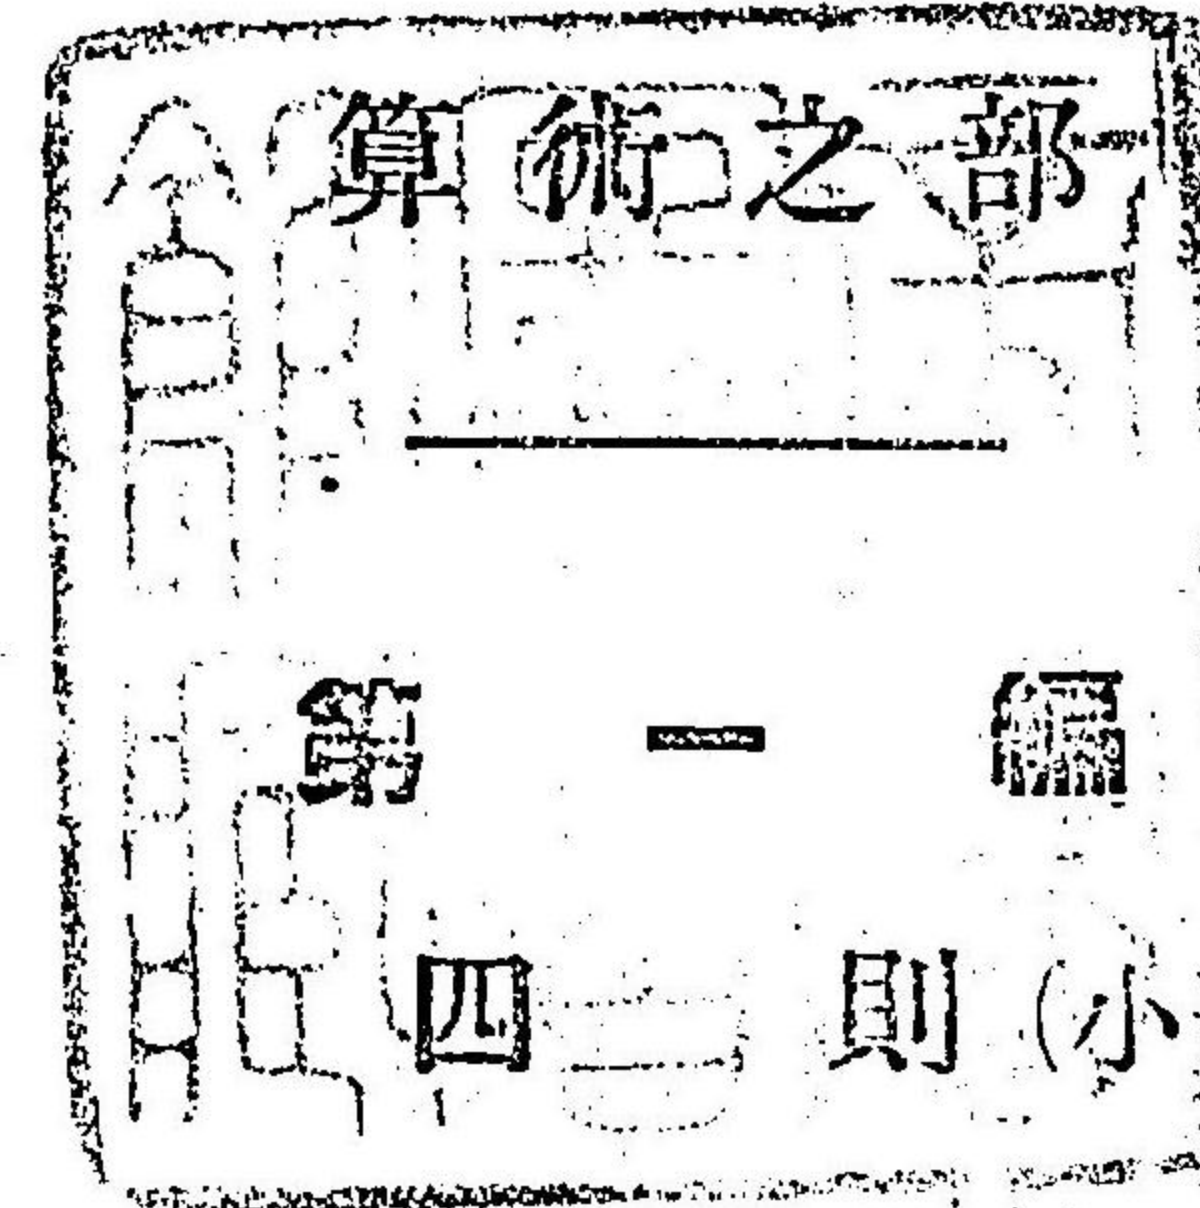 算術之部
第一編
四則(小